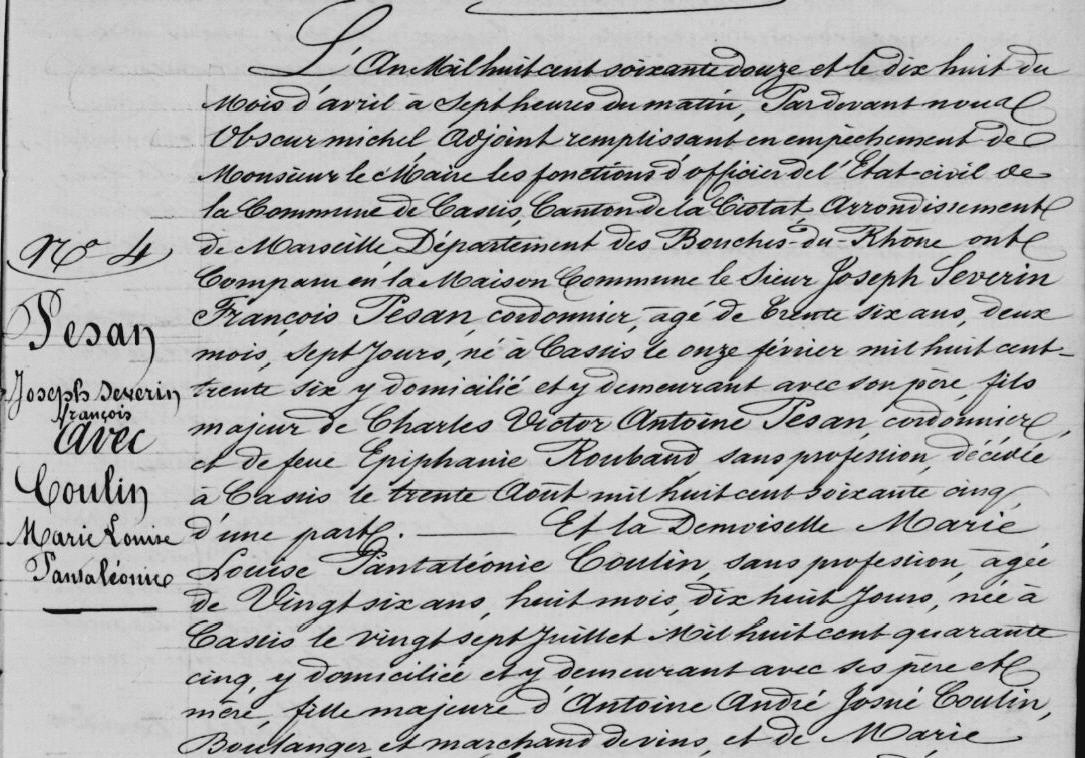 L'An Mil huit cent soixante douze et le dix huit du
Mois d'avril à sept heures du matin, Pardevant nous
Obscur michel, Adjoint remplissant en empêchement de
Monsieur le Maire les fonctions d'officier de l'Etat-civil de
la Commune de Cassis Canton de la Ciotat, Arrondissement
de Marseille Département des Bouches-du-Rhône ont
Comparu en la Maison Commune le Sieur Joseph Severin
François Pesan, cordonnier, agé de trente six ans, deux
mois, sept Jours, né à Cassis le onze février mil huit cent-
trente six y domicilié et y demeurant avec son père, fils
majeur de Charles Victor Antoine Pesan, cordonnier,
et de feue Epiphanie Roubaud, sans profession, décédée
à Cassis le trente Août mil huit cent soixante cinq
d'une part. — Et la Demoiselle Marie
Louise Pantaléonie Coulin, sans profession, agée
de Vingt six ans, huit mois, dix huit Jours, née à
Cassis le vingt sept Juillet Mil huit cent quarante
cinq, y domiciliée et y demeurant avec ses père et
mère, fille majeure d'Antoine André Josué Coulin,
Boulanger et marchand de vins, et de Marie
N° 4
Pesan
Joseph Severin
françois
avec
Coulin
Marie Louise
Pantaléonie